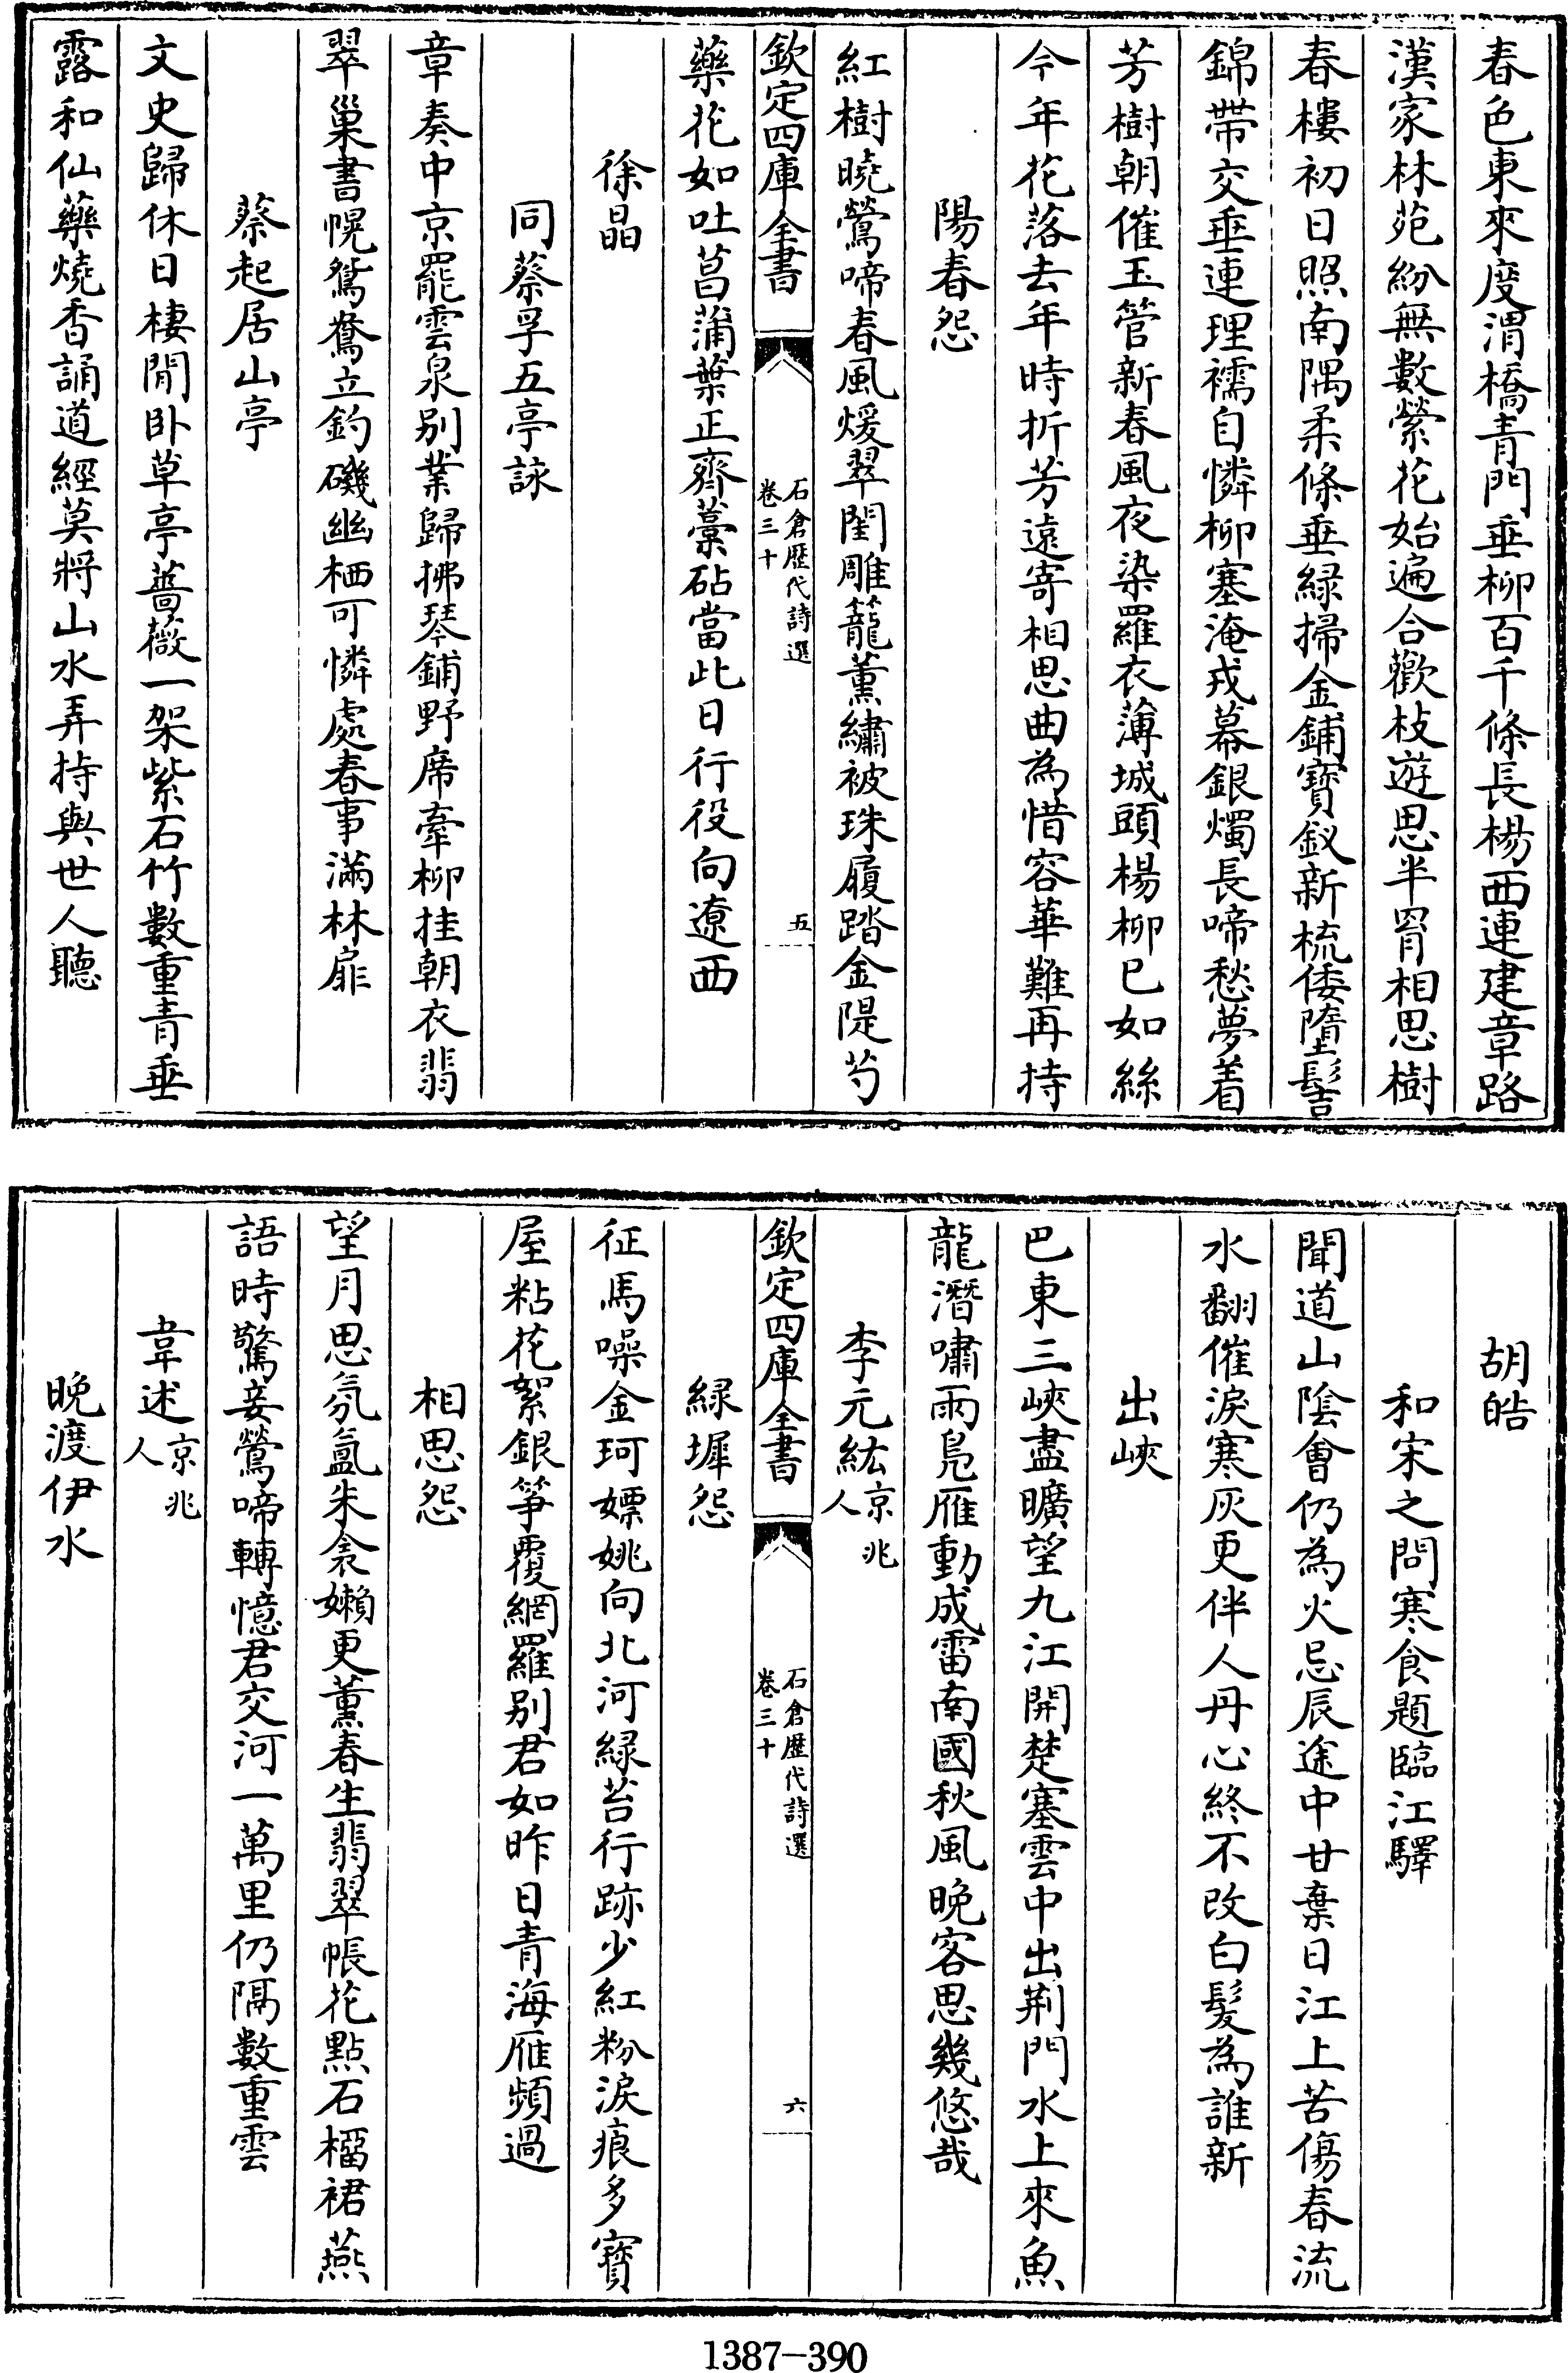 春色東來度渭橋青門垂柳百千條長楊西連建章路
漢家林苑紛無數縈花始遍合歡枝遊思半罥相思樹
春樓初日照南隅柔條垂緑掃金鋪寶釵新梳倭墮髻
錦帶交垂連理襦自憐柳塞淹戎幕銀燭長啼愁夢着
芳樹朝催玉管新春風夜染羅衣薄城頭楊柳已如絲
今年花落去年時折芳遠寄相思曲為惜容華難再持
陽春怨
紅樹曉鶯啼春風煖翠閨雕籠薰繡被珠履踏金隄芍
欽定四庫全書
石倉歴代詩選
卷三十
五
藥花如吐菖蒲葉正齊藁砧當此日行役向遼西
徐晶
同蔡孚五亭詠
章奏中京罷雲泉别業歸拂琴鋪野席牽柳挂朝衣翡
翠巢書幌鴛鴦立釣磯幽栖可憐處春事滿林扉
蔡起居山亭
文史歸休日棲閒卧草亭薔薇一架紫石竹數重青垂
露和仙藥燒香誦道經莫將山水弄持與世人聽
胡皓
和宋之問寒食題臨江驛
聞道山陰會仍為火忌辰途中甘棄日江上苦傷春流
水翻催淚寒灰更伴人丹心終不改白髪為誰新
出峽
巴東三峽盡曠望九江開楚塞雲中出荆門水上來魚
龍潛嘯雨鳧雁動成雷南國秋風晚客思幾悠哉
李元紘京兆人
欽定四庫全書
石倉歴代詩選
卷三十
六
緑墀怨
征馬噪金珂嫖姚向北河緑苔行跡少紅粉淚痕多寶
屋粘花絮銀箏覆網羅别君如昨日青海雁頻過
相思怨
望月思氛氳朱衾嬾更薰春生翡翠帳花點石榴裙燕
語時驚妾鶯啼轉憶君交河一萬里仍隔數重雲
韋述京兆人
晚渡伊水
1387-390